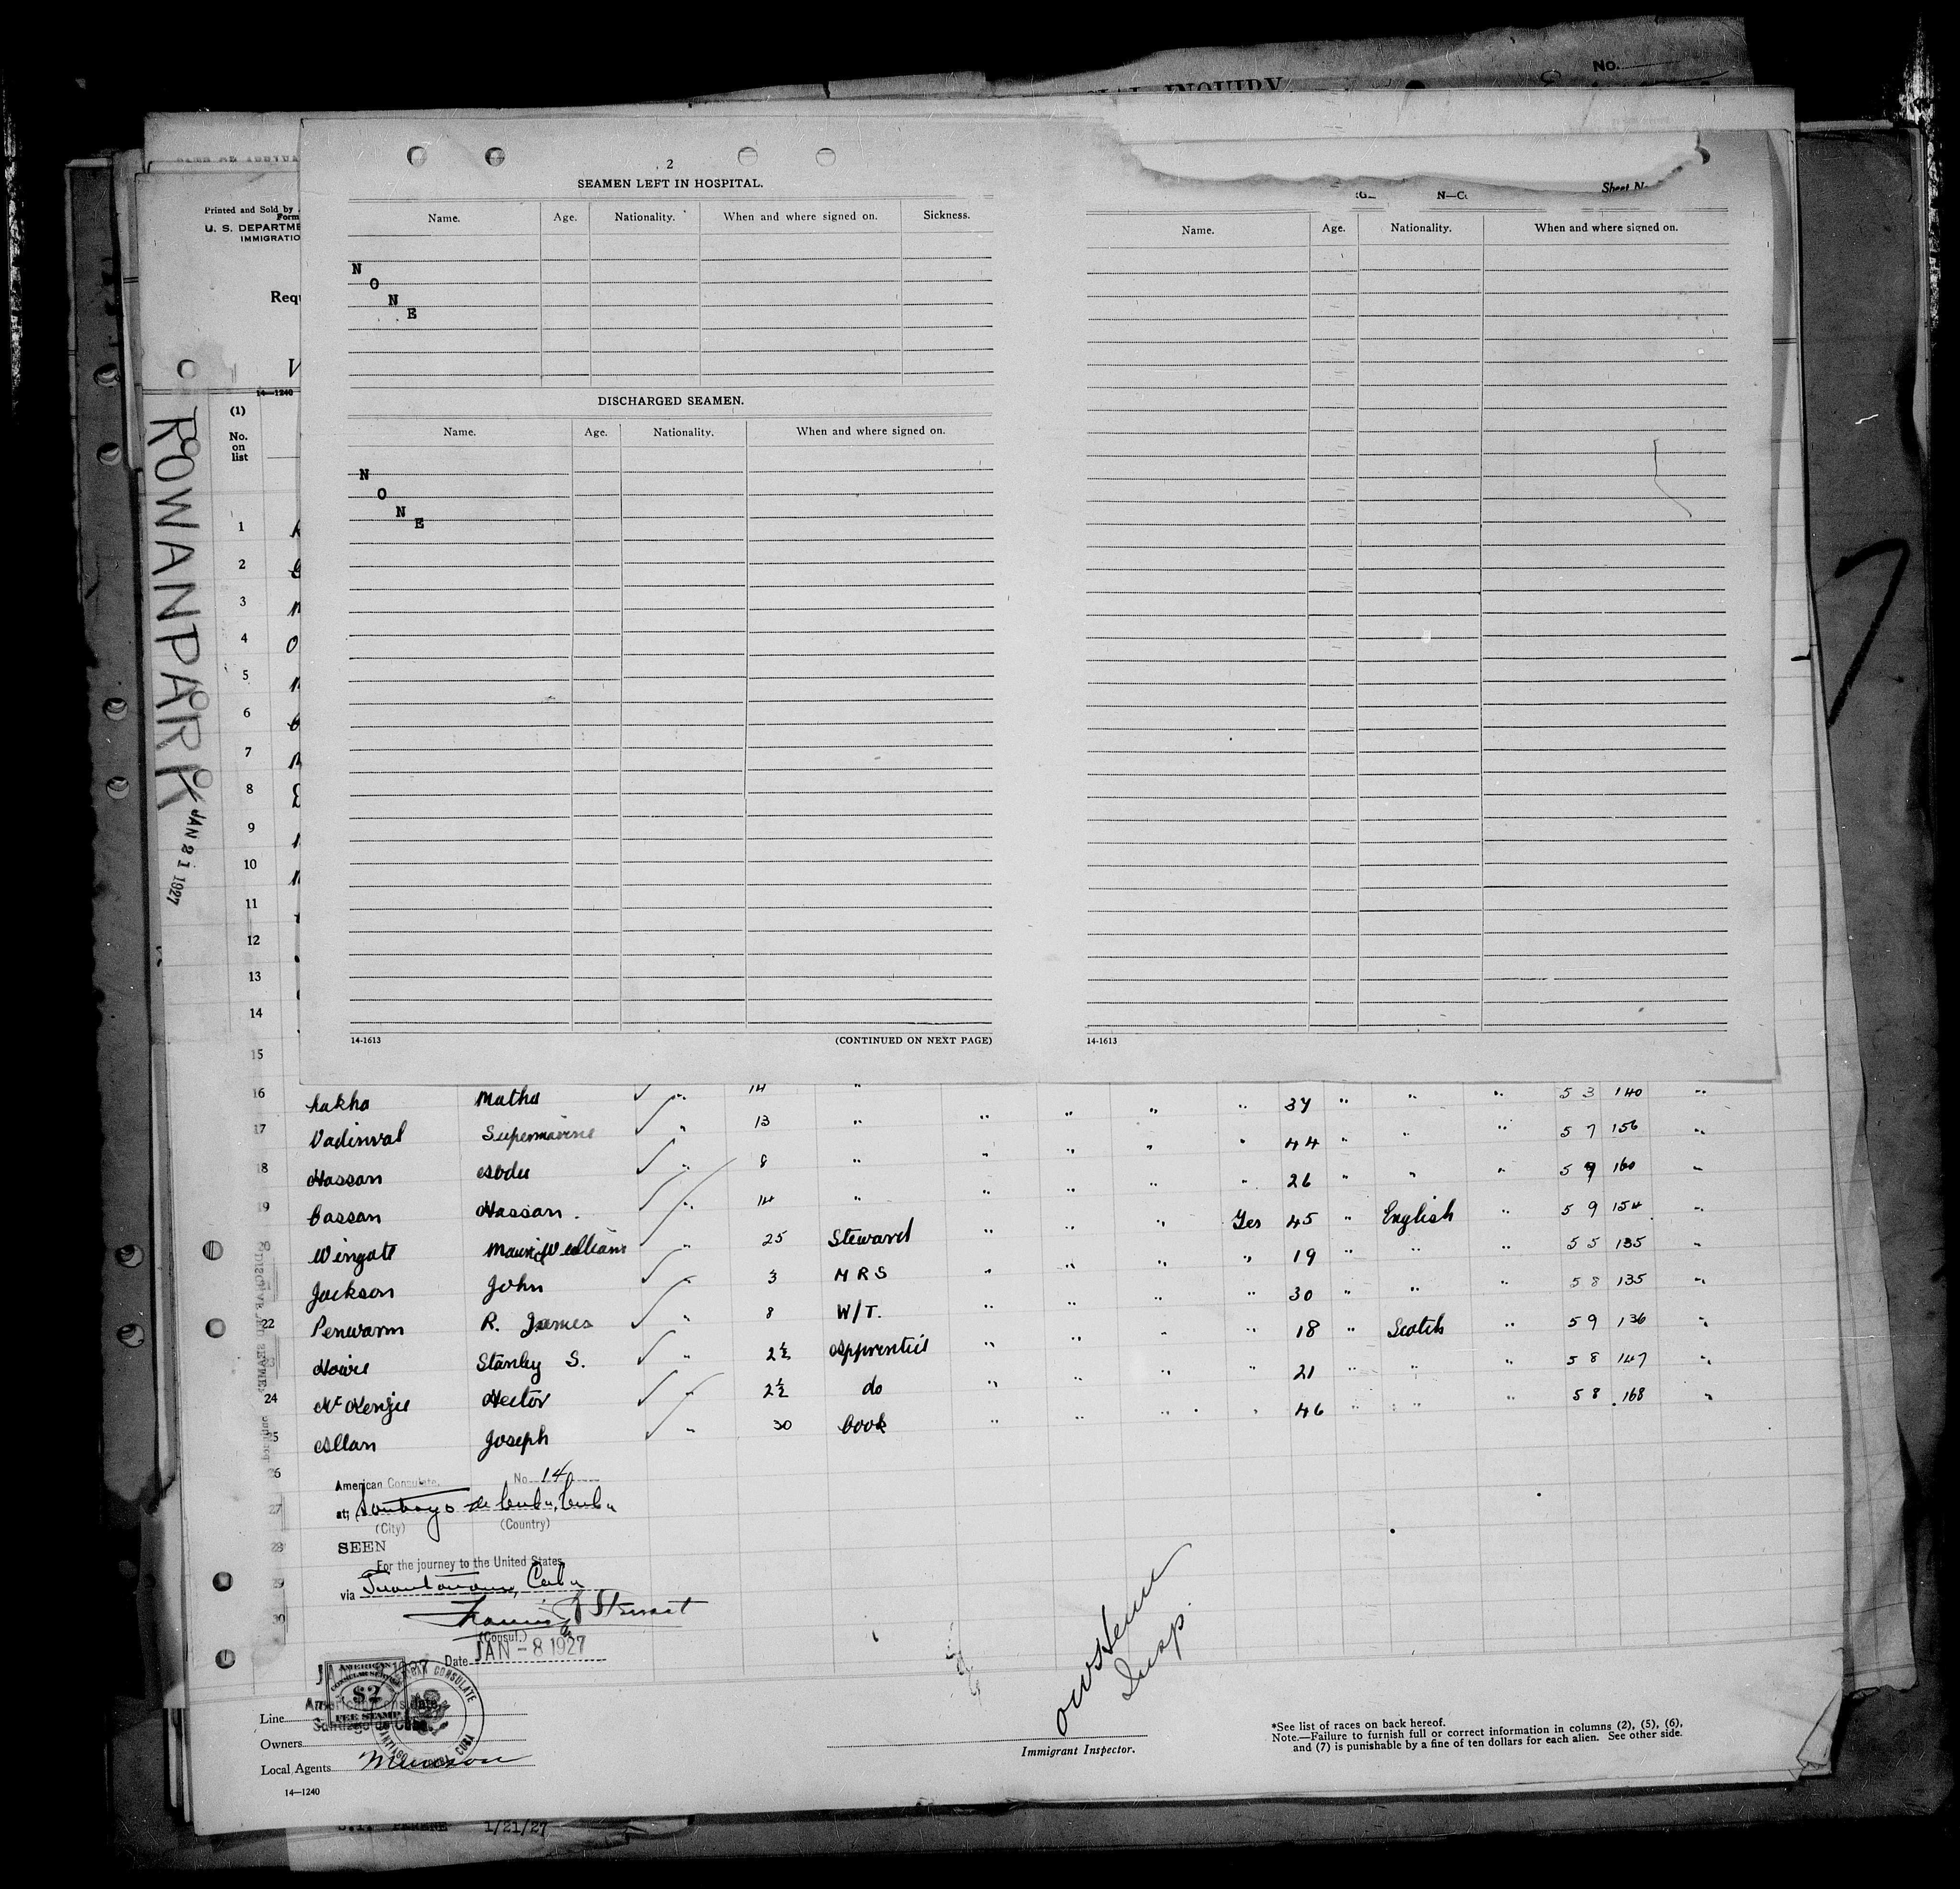 No.
2
SEAMEN LEFT IN HOSPITAL.
Name. Age. Nationality. When and where signed on. Sickness.
N
O
N
E
DISCHARGED SEAMEN.
Name. Age. Nationality. When and where signed on.
N
O
N
E
14-1613 (CONTINUED ON NEXT PAGE)
Name. Age. Nationality. When and where signed on.
14-1613
Printed and Sold by
Form
U. S. DEPARTME
IMMIGRATIO
Requ
14—1240
(1)
No.
on
list
ROWANPARK
JAN 21 1927
1
2
3
4
5
6
7
8
9
10
11
12
13
14
15
16 Lakha Matha " 14 " 37 " " " 5 3 140 "
17 Vadinval " 13 " " " " " 44 " " " 5 7 156 "
18 Hassan Abdu " 8 " " " " " 26 " " " 5 9 160 "
19 Cassan Hassan. " 14 " " " " Yes 45 " English " 5 9 154 "
20 Wingate William " 25 Steward " " " " 19 " " " 5 5 135 "
Jackson John " 3 M R S " " " " 30 " " " 5 8 135 "
22 Penwarm R. James " 8 W/T. " " " " 18 " Scotch " 5 9 136 "
Howie Stanley S. " 2½ Apprentice " " " " 21 " " " 5 8 147 "
24 McKenzie Hector " 2½ do " " " " 46 " " " 5 8 168 "
25 Allan Joseph " 30 Cook " "
26
27
28
29
30
American Consulate. No. 14
at Santiago de Cuba, Cuba
(City) (Country)
SEEN
For the journey to the United States
via Guantanamo, Cuba
Francis R Stewart
(Consul.)
Date JAN - 8 1927
AMERICAN
CONSULAR SERVICE
$2
FEE STAMP
American Consulate
Santiago de Cuba
Line
Owners
Local Agents Munson
14—1240
Insp.
Immigrant Inspector.
*See list of races on back hereof.
Note.—Failure to furnish full or correct information in columns (2), (5), (6),
and (7) is punishable by a fine of ten dollars for each alien. See other side.
1/21/27